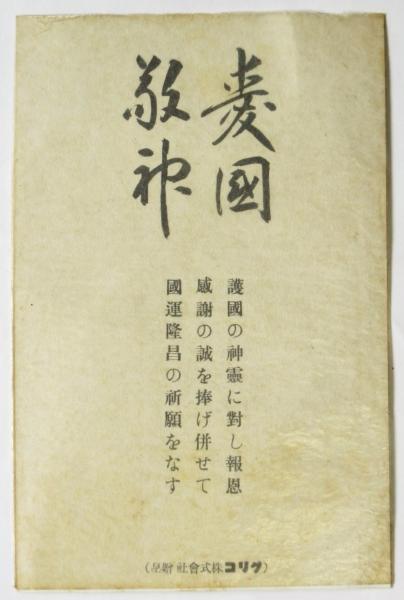 愛國
敬神
護國の神靈に對し報恩
感謝の誠を捧げ併せて
國運隆昌の祈願をなす
(グリコ株式會社 贈呈)